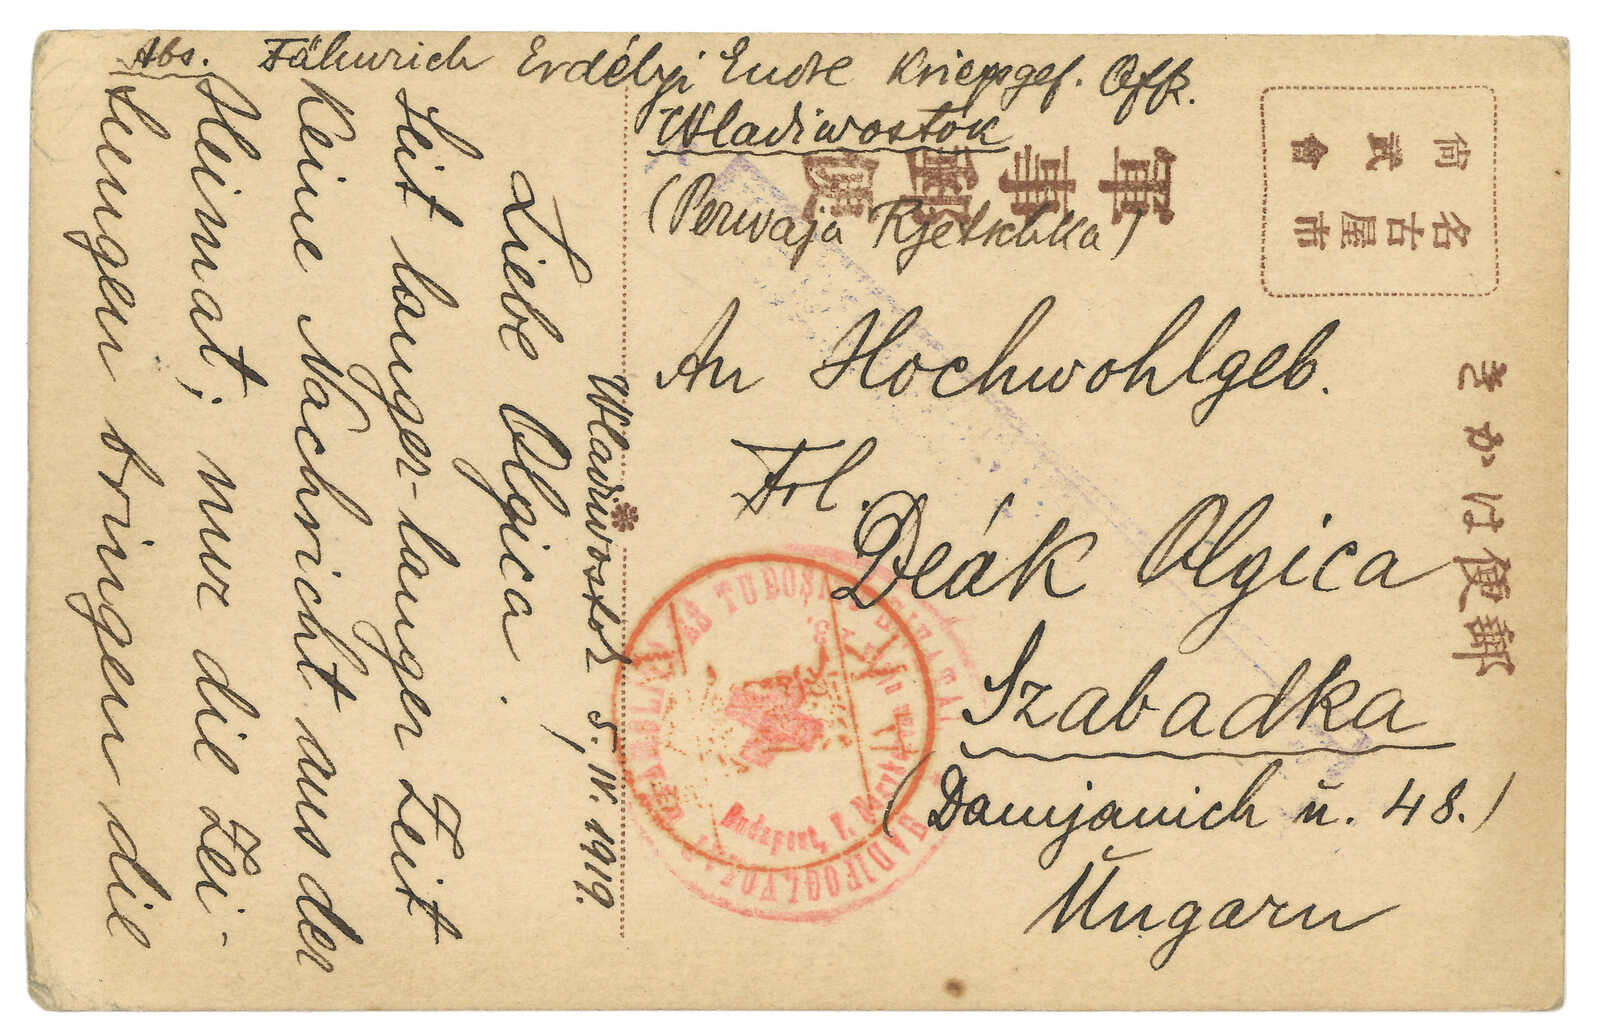 Abs. Fähnrich Erdélyi Endre Kriegsgef. Offz.
Wladiwostok
(Perwaja Rjetschka)
An Hochwohlgeb.
Frl.
Deák Olgica
Szabadka
(Damjanich u. 48.)
Ungarn
Wladiwostok 5. IV. 1919.
Liebe Olgica.
Seit langer-langer Zeit
Keine Nachricht aus der
Heimat; nur die Zei-
tungen bringen die
軍事郵便
名古屋市
尚武會
郵便はかき
Budapest, V.